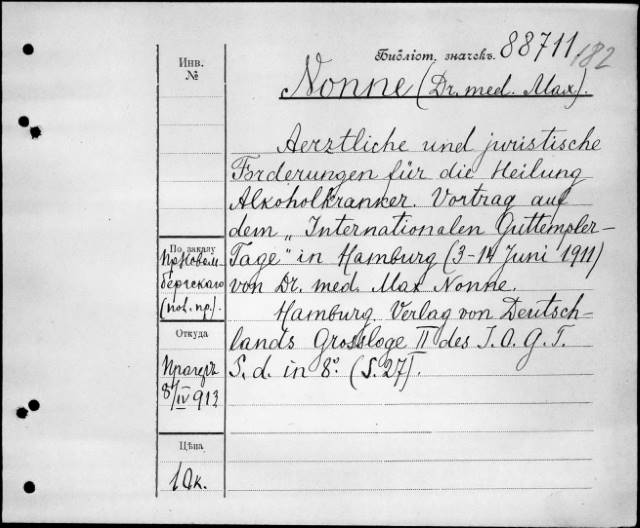 Библіот. значекъ. 88711/182
Инв.
№
Nonne (Dr. med. Max).
Aerztliche und juristische
Forderungen für die Heilung
Alkoholkranker. Vortrag auf
dem „Internationalen Guttempler-
Tage" in Hamburg (3-14 Juni 1911)
von Dr. med. Max Nonne.
Hamburg. Verlag von Deutsch-
lands Grossloge II des I. O. G. T.
S. d. in 8º. (S. 27).
По заказу
Пр. Новом-
бергскаго
(пов. пр.).
Откуда
Прагеръ
8/IV 913
Цѣна
10к.